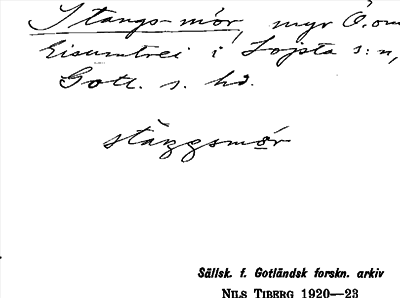 Stangs-mör, myr Ö.om
Lisumtrei i Lojsta s:n,
Gotl. s. hd.
stäŋŋsmör
Sällsk. f. Gotländsk forskn. arkiv
NILS TIBERG 1920—23